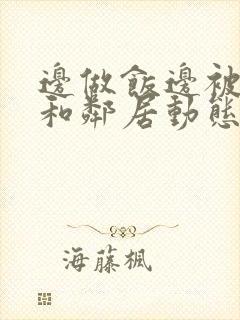 邊做飯邊被
和鄰居動態
海藤楓